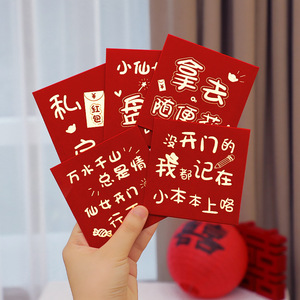 私
红包
小仙女
拿去
随便花
万水千山
总是情
仙女开门
行
没开门的
我都记在
小本本上咯